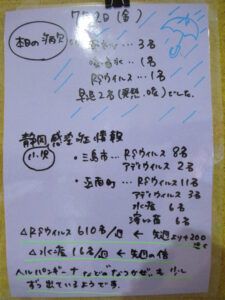 7月2日(金)
本日の病欠
… 3名
… 1名
RSウイルス … 1名
早退 2名(発熱、咳)でした。
静岡感染症情報
・三島市… RSウイルス 8名
アデノウイルス 2名
・函南町… RSウイルス 11名
アデノウイルス 3名
水痘 6名
溶連菌 6名
△RSウイルス 610名/週 ← 先週より+200
近く
△水痘 16名/週 ← 先週の倍
ヘルパンギーナなどの なつかぜ も 少し
ずつ出ているようです。